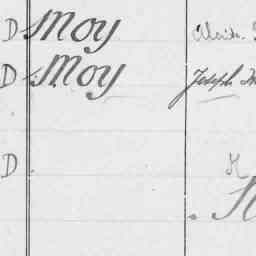 D Moy
D Moy Joseph
D H